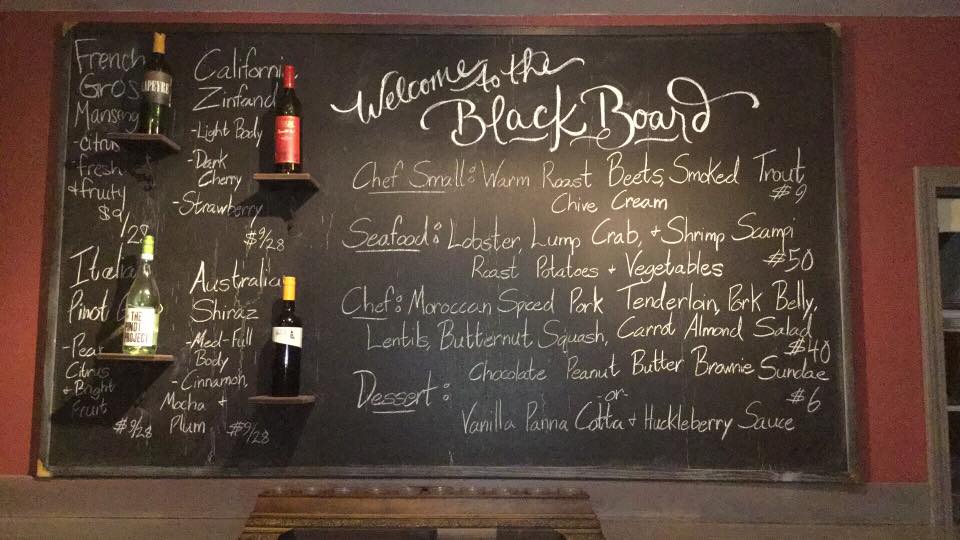 French
Gros
Manseng
-Citrus
-fresh
+fruity
$9/28
California
Zinfand
-Light Body
-Dark
Cherry
-Strawberry
$9/28
Italia
Pinot G
-Pear
Citrus
+ Bright
Fruit
$9/28
THE
PINOT
PROJECT
Australia
Shiraz
-Med-Full
Body
-Cinnamon,
Mocha +
Plum
$9/28
Welcome to the
Black Board
Chef Small: Warm Roast Beets, Smoked Trout
Chive Cream $9
Seafood: Lobster, Lump Crab, + Shrimp Scampi
Roast Potatoes + Vegetables $50
Chef: Moroccan Spced Pork Tenderloin, Pork Belly,
Lentils, Buttiernut Squash, Carrot Almond Salad
$40
Dessert: Chocolate Peanut Butter Brownie Sundae
-or- $6
Vanilla Panna Cotta + Huckleberry Sauce